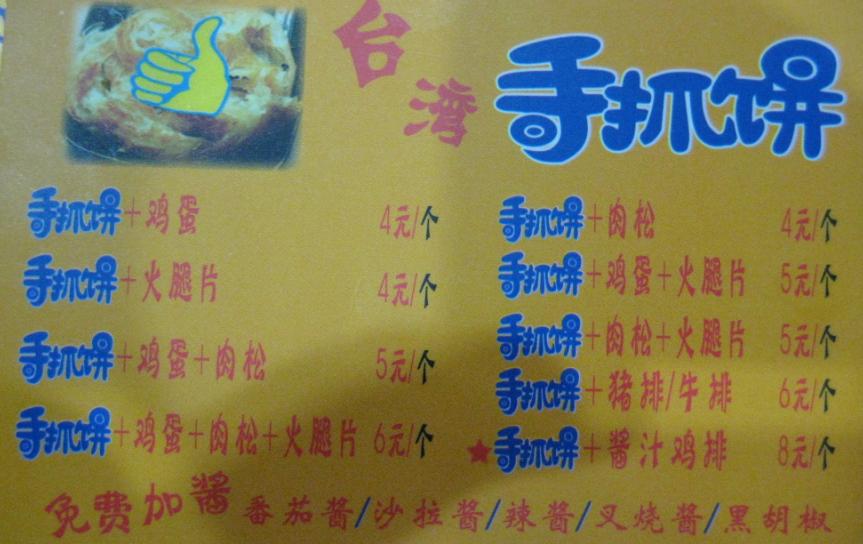 台湾 手抓饼
手抓饼+鸡蛋 4元/个
手抓饼+火腿片 4元/个
手抓饼+鸡蛋+肉松 5元/个
手抓饼+鸡蛋+肉松+火腿片 6元/个
手抓饼+肉松 4元/个
手抓饼+鸡蛋+火腿片 5元/个
手抓饼+肉松+火腿片 5元/个
手抓饼+猪排/牛排 6元/个
★手抓饼+酱汁鸡排 8元/个
免费加酱 番茄酱/沙拉酱/辣酱/叉烧酱/黑胡椒